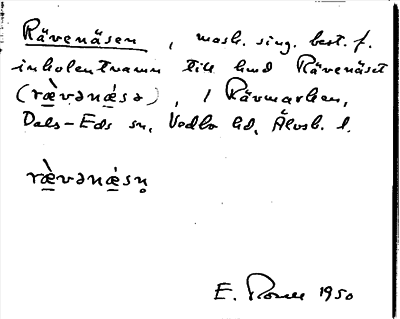 Rävenäsen, mask. sing. best. f.
inbolentnamn till hmd Rävenäset
(ræ̀vənǽsə), i Rävmarken,
Dals-Eds sn, Vedbo hd, Älvsb. l.
ræ̀vənǽsn̥
E. 1950